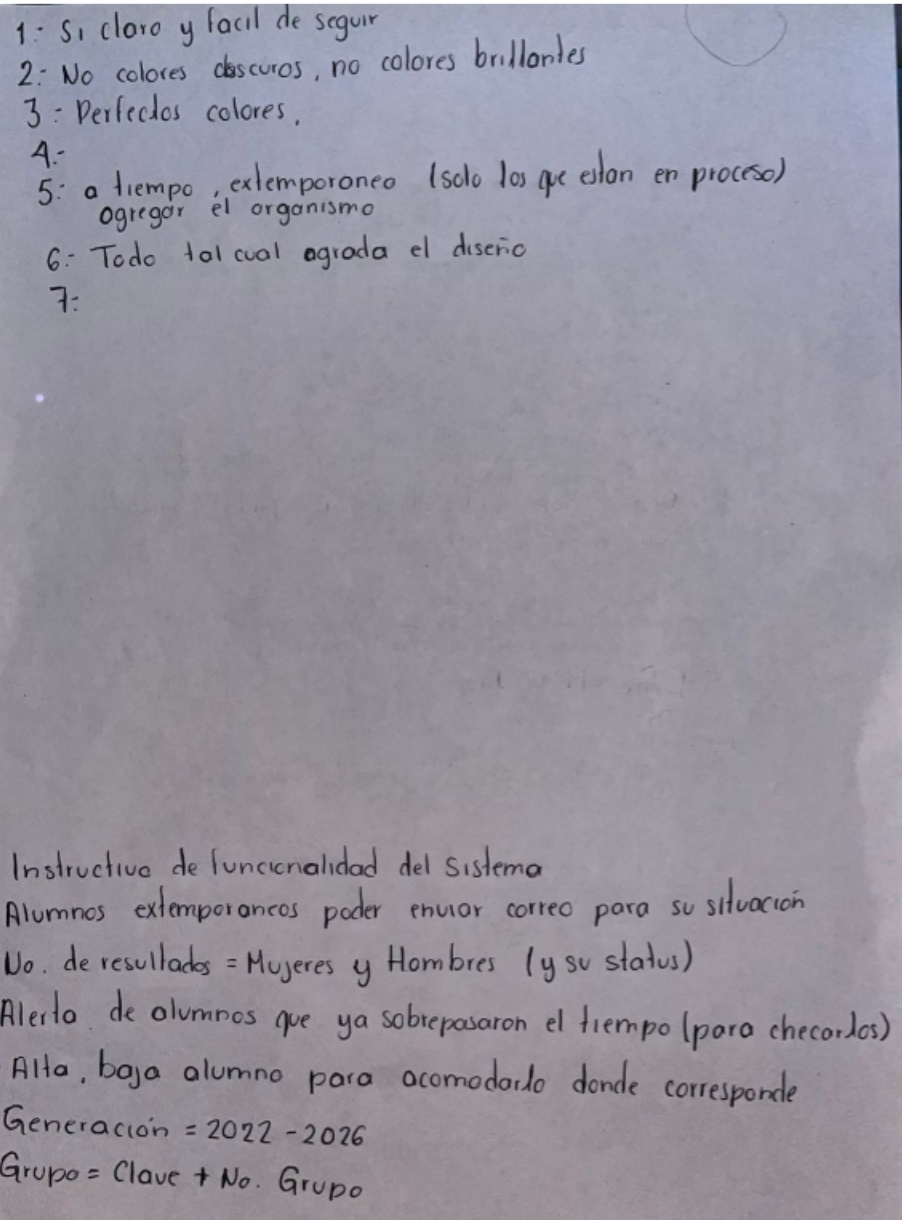 1.- Si claro y facil de seguir
2.- No colores obscuros, no colores brillantes
3.- Perfectos colores.
4.-
5.- a tiempo, extemporoneo (solo los que estan en proceso)
agregar el organismo
6.- Todo tal cual agrada el diseño
7.-
Instructivo de funcionalidad del Sistema
Alumnos extemporoneos poder enviar correo para su situación
No. de resultados = Mujeres y Hombres (y su status)
Alerta de alumnos que ya sobrepasaron el tiempo (para checarlos)
Alta, baja alumno para acomodarlo donde corresponde
Generación = 2022 - 2026
Grupo = Clave + No. Grupo